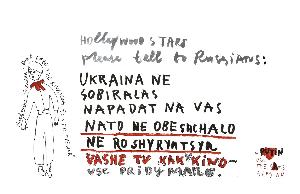 HOLLYWOOD STARS
please tell to Russians:
UKRAINA NE
SOBIRALAS
NAPADAT NA VAS
NATO NE OBESHCHALO
NE ROSHYRYATSYA
VASHE TV KAK KINO-
VSE PRIDUMANO
PUTIN